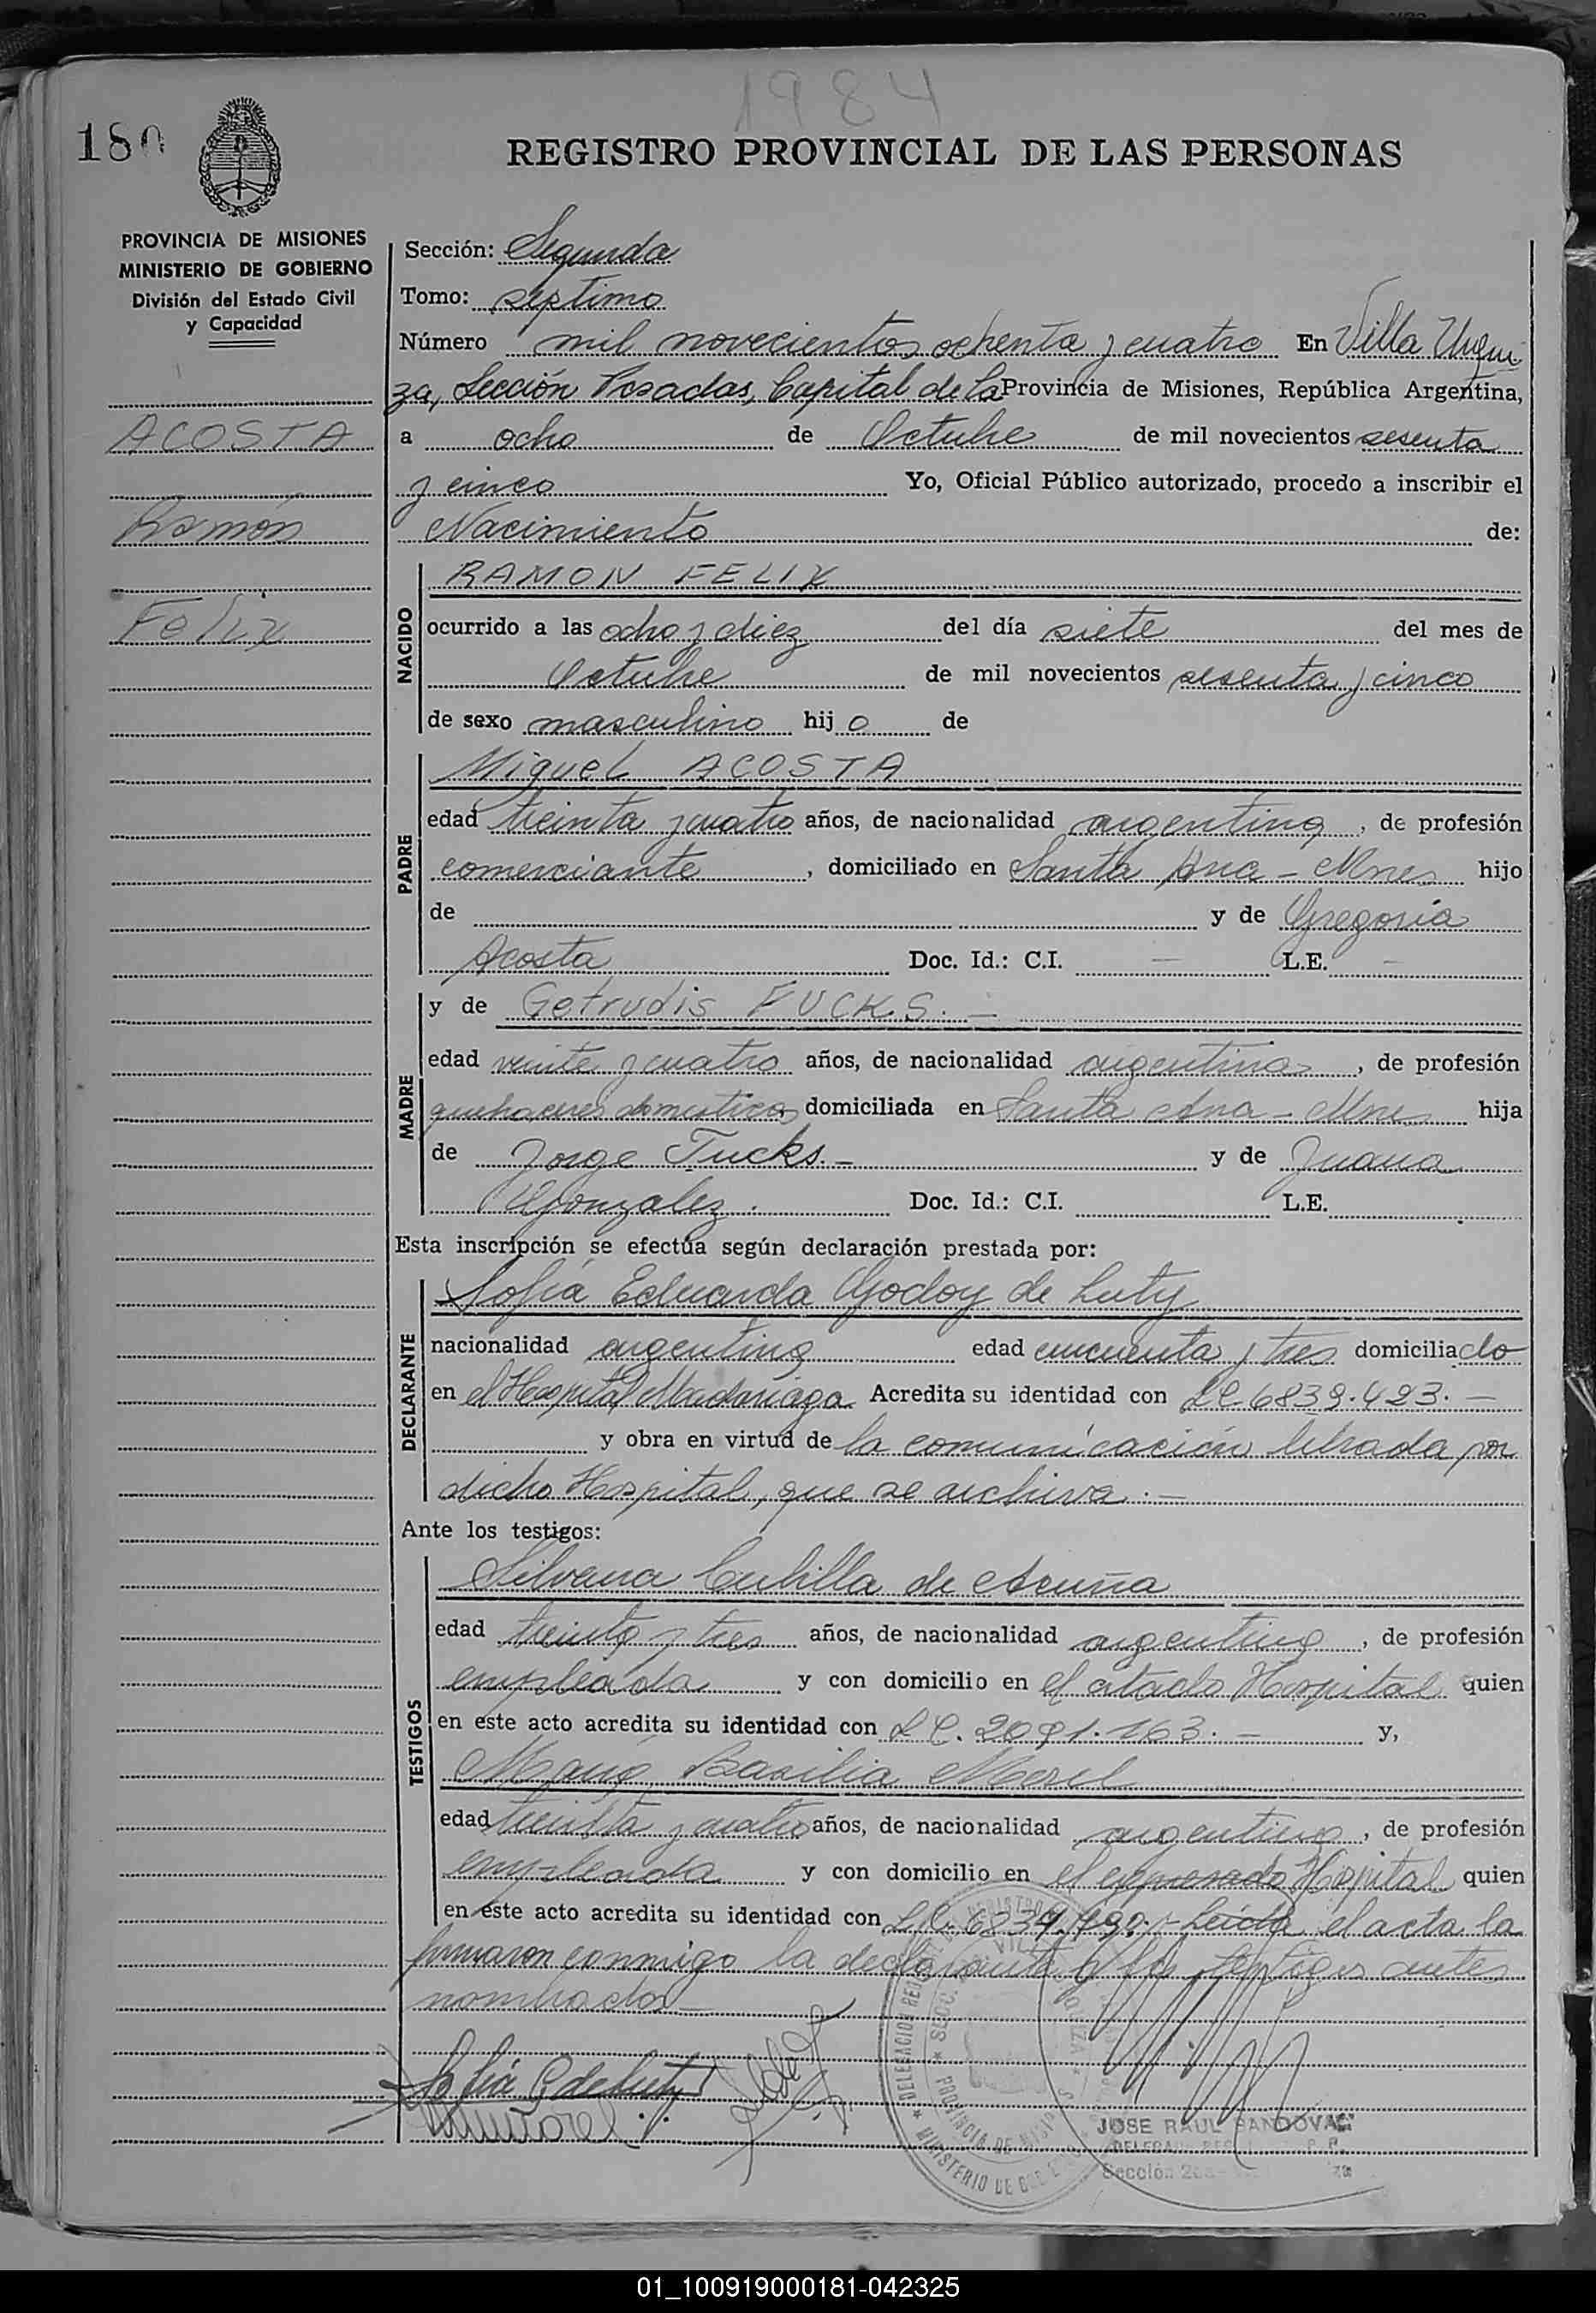 1984
180
REGISTRO PROVINCIAL DE LAS PERSONAS
PROVINCIA DE MISIONES
MINISTERIO DE GOBIERNO
División del Estado Civil
y Capacidad
ACOSTA
Ramón
Felix
Sección: Segunda
Tomo: septimo
Número mil novecientos ochenta y cuatro En Villa Urqui
za, Sección Posadas, Capital de la Provincia de Misiones, República Argentina,
a ocho de Octubre de mil novecientos sesenta
y cinco Yo, Oficial Público autorizado, procedo a inscribir el
Nacimiento de:
NACIDO
RAMON FELIX
ocurrido a las ocho y diez del día siete del mes de
Octubre de mil novecientos sesenta y cinco
de sexo masculino hijo de
PADRE
Miguel ACOSTA
edad treinta y cuatro años, de nacionalidad argentina, de profesión
comerciante, domiciliado en Santa Ana - Mnes hijo
de y de Gregoria
Acosta Doc. Id.: C.I. — L.E. —
MADRE
y de Getrudis FUCKS. —
edad veinte y cuatro años, de nacionalidad argentina, de profesión
quehaceres domesticos domiciliada en Santa Ana - Mnes hija
de Jorge Fucks. — y de Juana
Gonzalez. Doc. Id.: C.I. L.E.
Esta inscripción se efectúa según declaración prestada por:
DECLARANTE
Sofía Eduarda Godoy de Luty
nacionalidad argentina edad cincuenta y tres domiciliado
en el Hospital Madariaga Acredita su identidad con LC. 6839.423. —
y obra en virtud de la comunicación librada por
dicho Hospital, que se archiva. —
Ante los testigos:
TESTIGOS
Silvana Cubilla de Acuña
edad treinta y tres años, de nacionalidad argentina, de profesión
empleada y con domicilio en el citado Hospital quien
en este acto acredita su identidad con L C. 2091.163. — y,
Basilia Morel
edad treinta y cuatro años, de nacionalidad argentina, de profesión
empleada y con domicilio en el expresado Hospital quien
en este acto acredita su identidad con L.C. Leída el acta la
firmaron conmigo la declarante y los testigos antes
nombrados —
Sofia G de Luty
JOSE RAUL SANDOVAL
Sección 2da
PROVINCIA DE MISIONES
MINISTERIO DE GOBIERNO
01_100919000181-042325